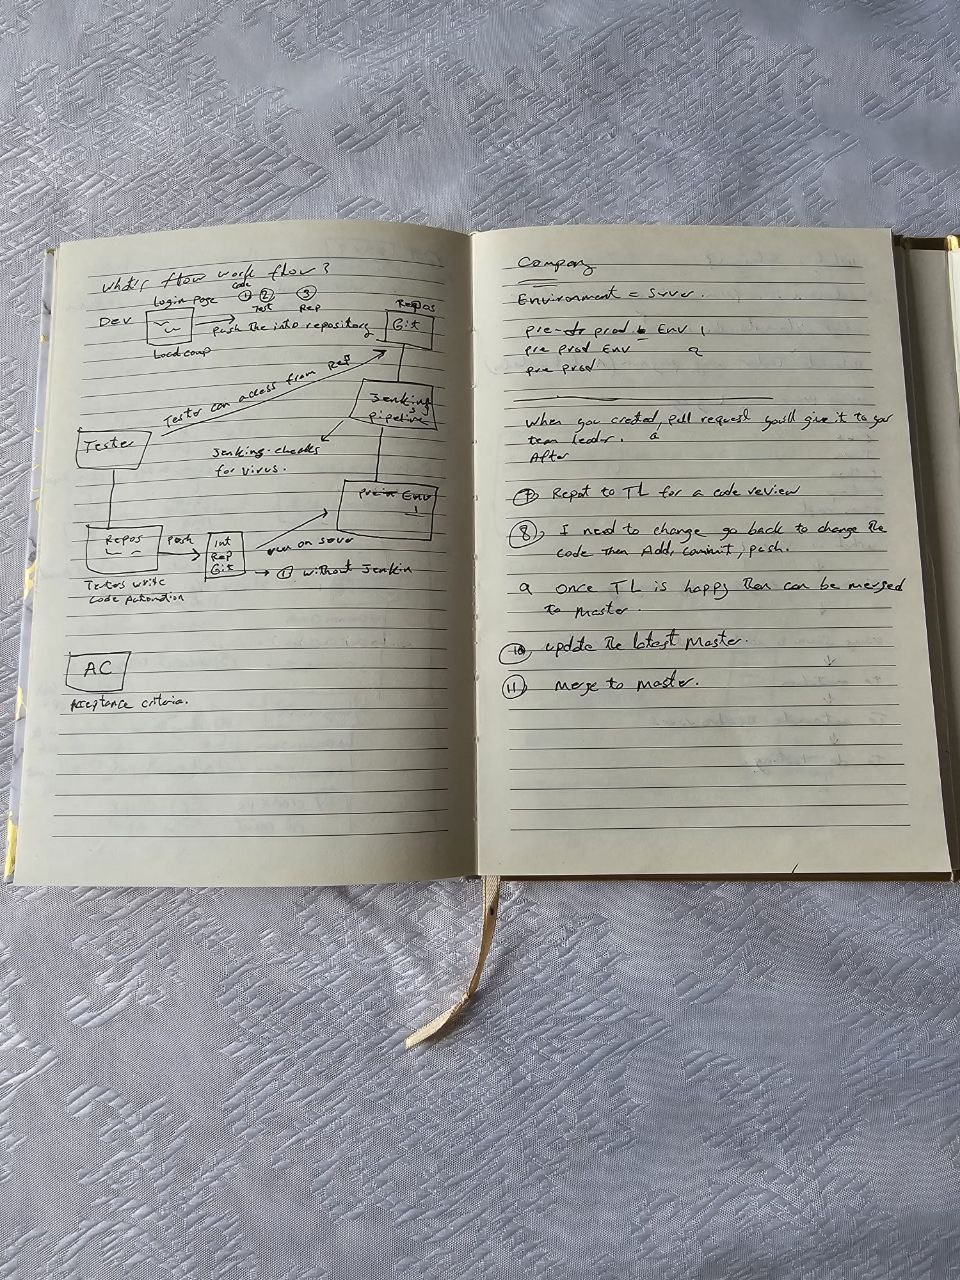 what's flow work flow?
Login page
code
① ② ③
Test Rep
Dev
push the into repository
Repos
Git
Local comp
Tester can access from Rep
Jenkins
pipeline
Tester
Jenking checks
for virus.
Env
1
Repos
push
Int
Rep
Git
run on sever
→ ① without Jenkin
Testers write
code Automation
AC
Acceptance criteria.
Company
Environment = server.
prod Env 1
pre prod Env 2
pre prod
When you created pull request you'll give it to your
team leader.
After
⑦ Repot to TL for a code review
⑧ I need to change go back to change the
code then Add, commit, push.
9 once TL is happy then can be merged
to master.
⑩ update the latest Master.
⑪ Merge to master.